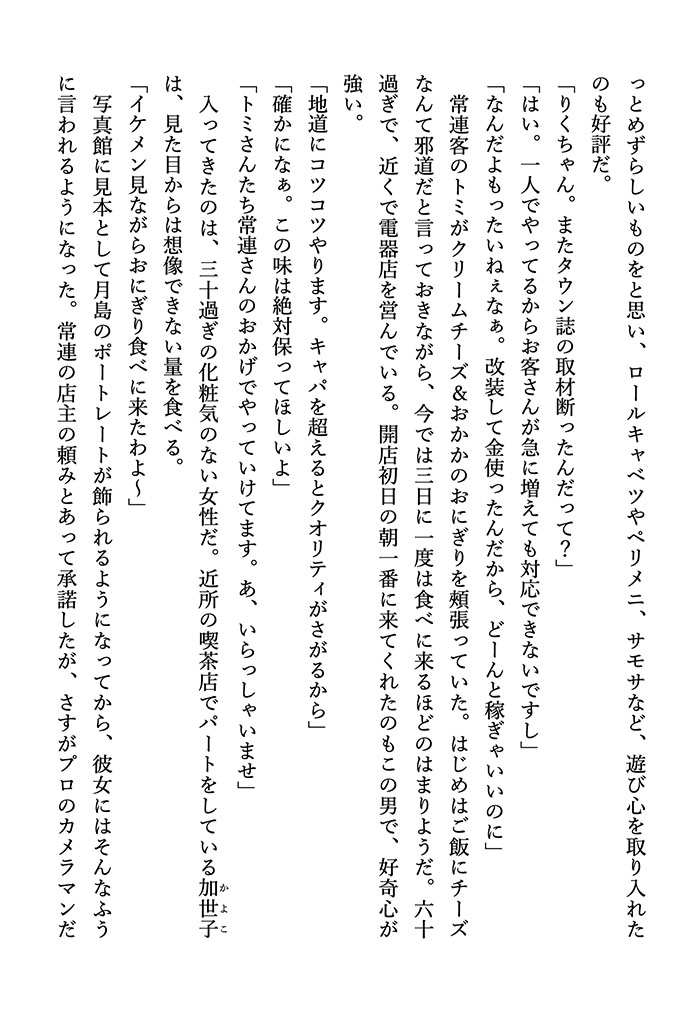 っとめずらしいものをと思い、ロールキャベツやペリメニ、サモサなど、遊び心を取り入れた
のも好評だ。
「りくちゃん。またタウン誌の取材断ったんだって？」
「はい。一人でやってるからお客さんが急に増えても対応できないですし」
「なんだよもったいねぇなぁ。改装して金使ったんだから、どーんと稼ぎゃいいのに」
　常連客のトミがクリームチーズ＆おかかのおにぎりを頰張っていた。はじめはご飯にチーズ
なんて邪道だと言っておきながら、今では三日に一度は食べに来るほどのはまりようだ。六十
過ぎで、近くで電器店を営んでいる。開店初日の朝一番に来てくれたのもこの男で、好奇心が
強い。
「地道にコツコツやります。キャパを超えるとクオリティがさがるから」
「確かになぁ。この味は絶対保ってほしいよ」
「トミさんたち常連さんのおかげでやっていけてます。あ、いらっしゃいませ」
　入ってきたのは、三十過ぎの化粧気のない女性だ。近所の喫茶店でパートをしている加世子かよこ
は、見た目からは想像できない量を食べる。
「イケメン見ながらおにぎり食べに来たわよ～」
　写真館に見本として月島のポートレートが飾られるようになってから、彼女にはそんなふう
に言われるようになった。常連の店主の頼みとあって承諾したが、さすがプロのカメラマンだ